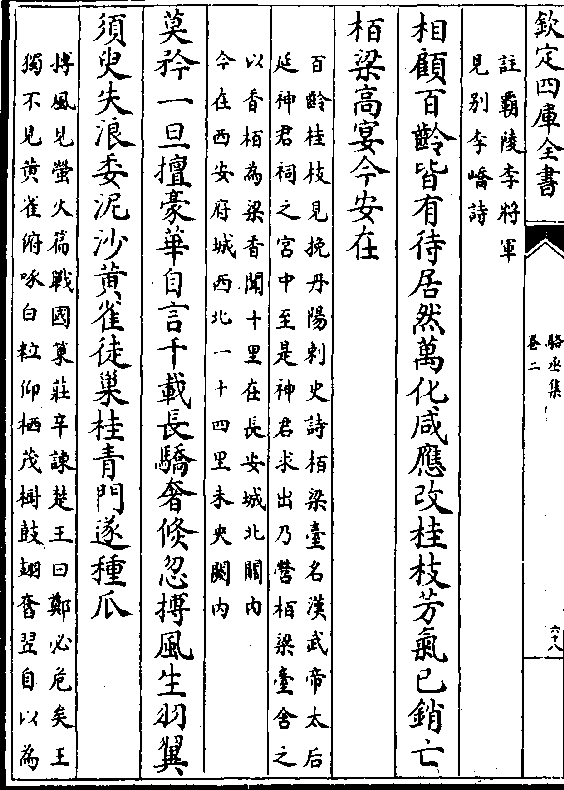 欽定四庫全書
駱丞集
卷二
六十八
註霸陵李將軍
見别李嶠詩
相顧百齡皆有待居然萬化咸應改桂枝芳氣已銷亡
栢梁高宴今安在
百齡桂枝見挽丹陽刺史詩栢梁臺名漢武帝太后
延神君祠之宮中至是神君求出乃營栢梁臺舍之
以香栢為梁香聞十里在長安城北闕内
今在西安府城西北一十四里未央闕内
莫矜一旦擅豪華自言千載長驕奢倐忽摶風生羽翼
須臾失浪委泥沙黄雀徒巢桂青門遂種瓜
摶風見螢火篇戰國䇿莊辛諫楚王曰鄭必危矣王
獨不見黄雀俯啄白粒仰栖茂樹鼓翅奮翌自以為